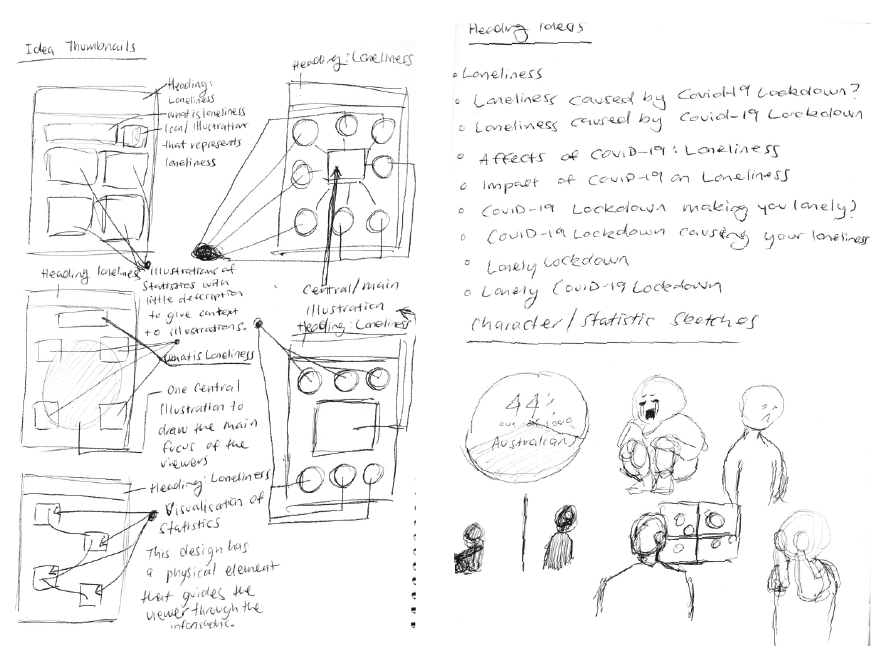 Idea Thumbnails
Heading:
Loneliness
what is loneliness
Icon/Illustration
that represents
loneliness
Heading: Loneliness
Illustrations of
Statistics with
little description
to give context
to illustrations.
Central/main
Illustration
Heading loneliness
What is Loneliness
One Central
Illustration to
draw the main
focus of the
viewers
Heading: Loneliness
Heading: Loneliness
Visualisation of
Statistics
This design has
a physical element
that guides the
viewer through the
infographic.
Heading Ideas
Loneliness
Loneliness caused by Covid-19 Lockdown?
Loneliness caused by Covid-19 Lockdown
Affects of COVID-19: Loneliness
Impact of COVID-19 on Loneliness
COVID-19 Lockdown making you lonely?
COVID-19 Lockdown causing your loneliness
Lonely Lockdown
Lonely COVID-19 Lockdown
Character/Statistic Sketches
44%
out of 1000
Australian